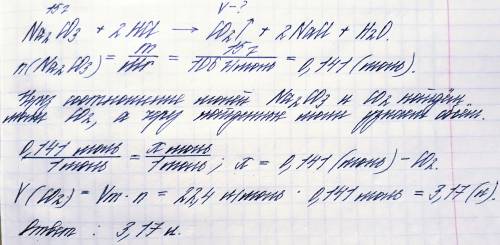 15 г V - ?
Na₂CO₃ + 2 HCl → CO₂↑ + 2 NaCl + H₂O.
n(Na₂CO₃) = m/Mr = 15 г/106 г/моль = 0,141 (моль).
соотношение молей Na₂CO₃ и CO₂ найдём
моли CO₂, а найденные моли объём.
0,141 моль/1 моль = x моль/1 моль ; x = 0,141 (моль) – CO₂.
V (CO₂) = Vm · n = 22,4 л/моль · 0,141 моль = 3,17 (л).
Ответ : 3,17 л.